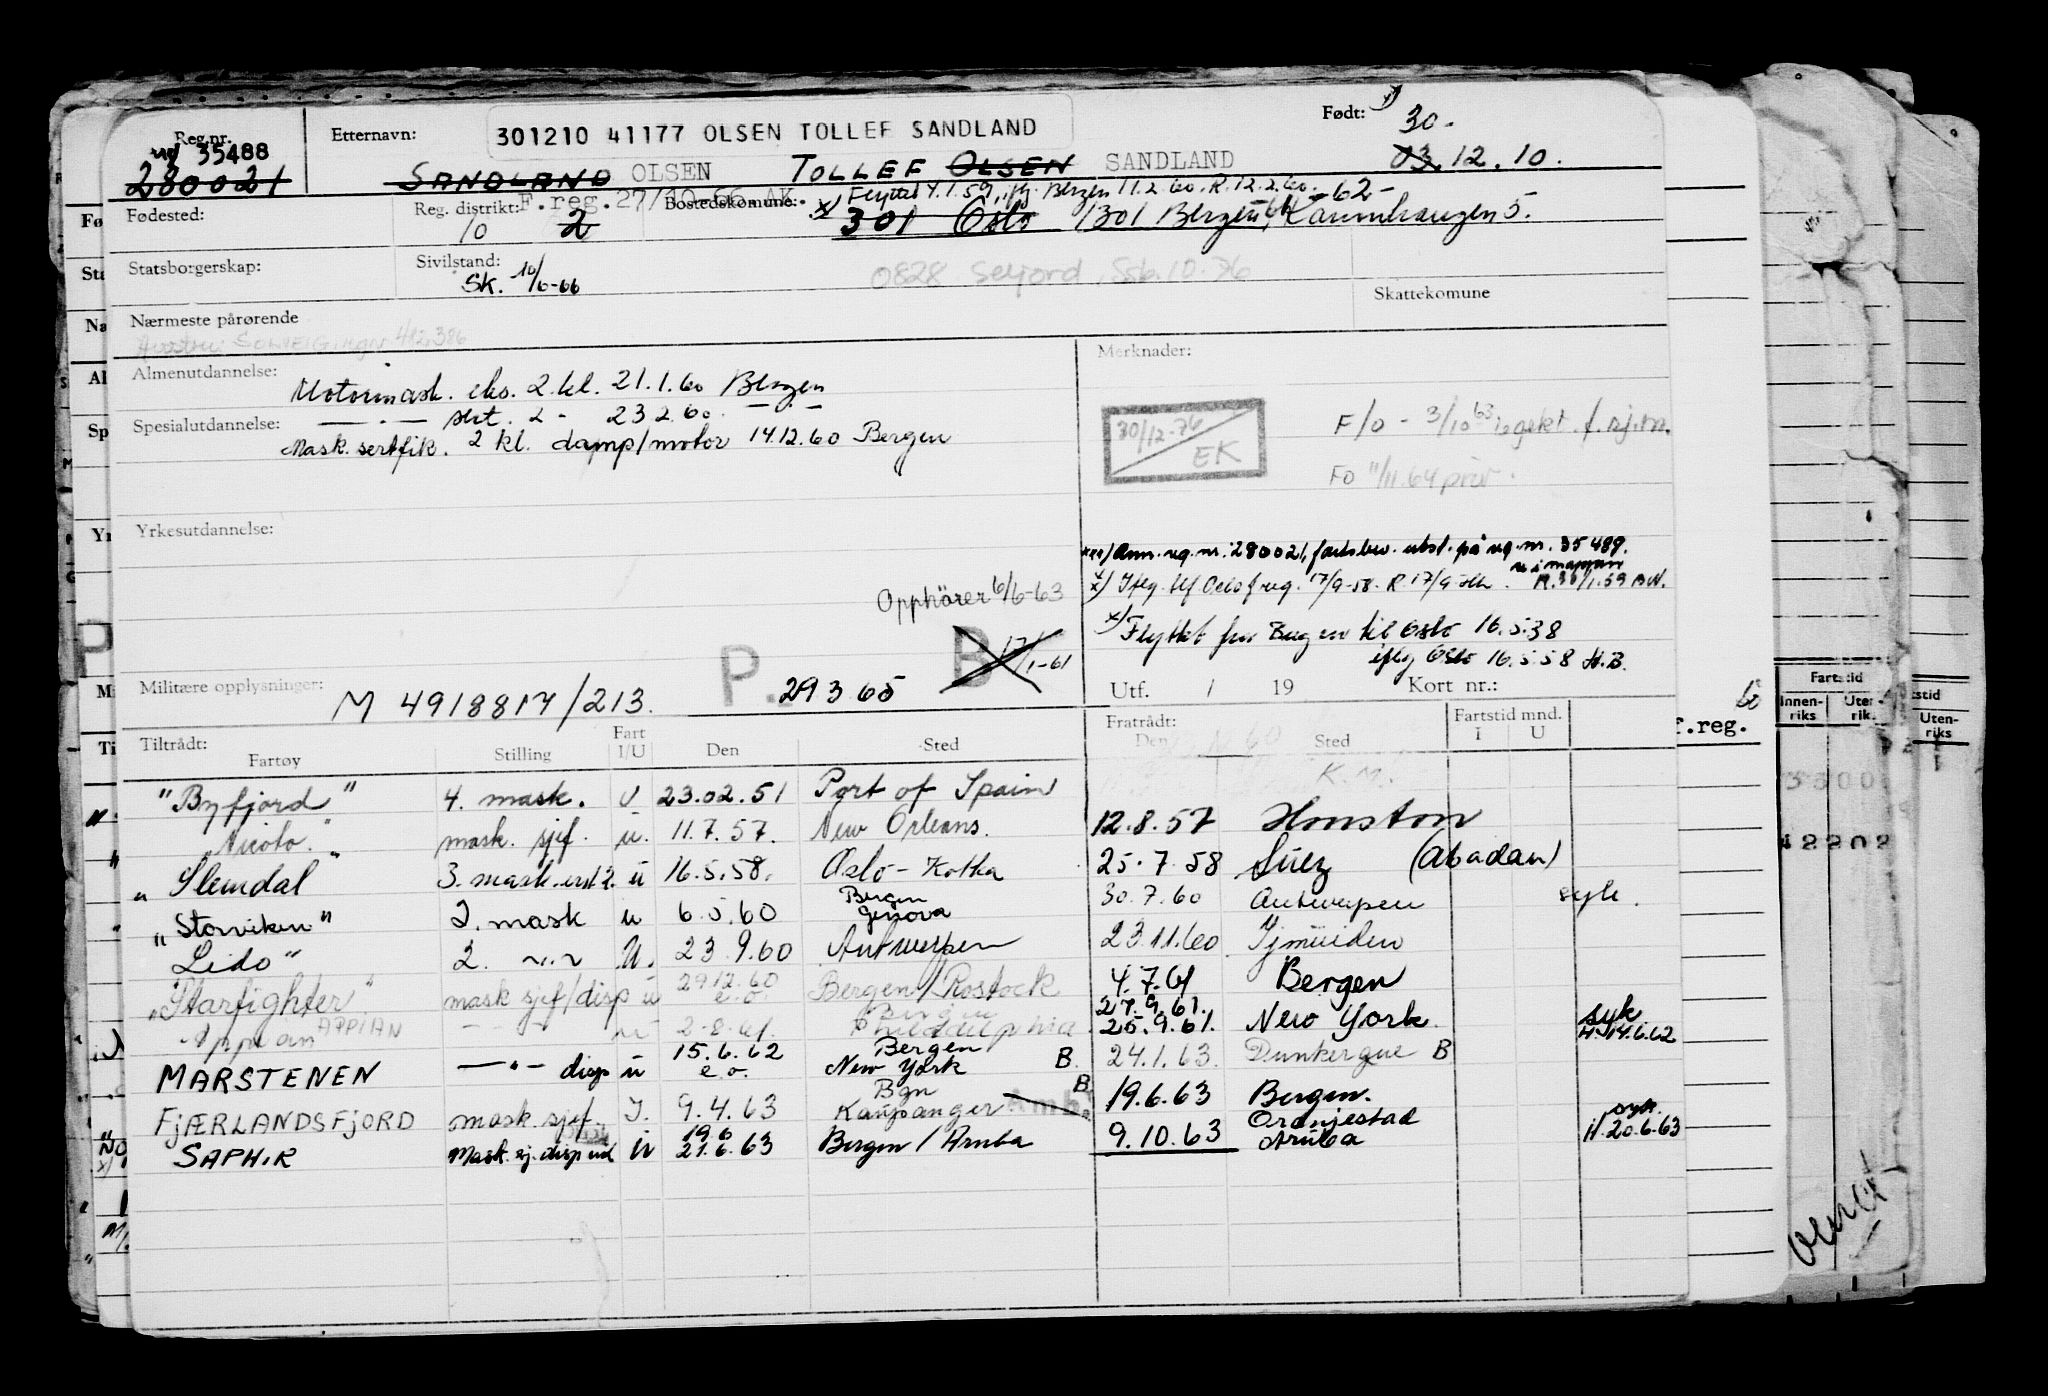 Reg.nr. 35488
280021
Etternavn: 301210 41177 OLSEN TOLLEF SANDLAND
Født: 30.
SANDLAND OLSEN TOLLEF OLSEN SANDLAND 03.12.10.
F.reg.27/10-66.AK.
Flyttet 4.1.59, Bergen 11.2.60. R.12.2.60. -62-
Fødested:
Reg. distrikt: 10 2
Bostedskommune: x) 301 Oslo 1301 Bergen,
Statsborgerskap:
Sivilstand: Sk. 10/6-66
0828 Seljord 10.76
Nærmeste pårørende
Skattekomune
Almenutdannelse: Motormask. eks. 2.kl. 21.1.60 Bergen
— " — 2 - 23.2.60. — " —
Spesialutdannelse: Mask. sertfik. 2 kl. damp/motor 14.12.60 Bergen
Yrkesutdannelse:
Merknader:
30/12-76 EK
F/O - 3/10 63 f. sj.m.
FO 11/11.64 prøv.
xxx) Ann. reg. nr. 280021, fartsbev. utst. på reg. nr. 35489.
x) Iflg. tlf Oslo f reg. 17/9-58. R. 17/9 R.30/1.59 BN.
x) Flyttet fra Bergen til Oslo 16.5.58
iflg Oslo 16.5.58 H.B.
Opphører 6/6-63
B 17/1-61
Militære opplysninger: M 4918817/213.
P. 29.3.65
Utf. / 19 Kort nr.:
Tiltrådt: Fartøy Stilling Fart I/U Den Sted
Fratrådt: Den Sted Fartstid mnd. I U
K.M.
"Byfjord" 4. mask. U 23.02.51 Port of Spain
"Nicoto" mask. sjef. u. 11.7.57. New Orleans. 12.8.57 Houston
"Slemdal" 3. mask. u 16.5.58. Oslo - Kotka 25.7.58 Suez (Abadan)
"Storviken" 2. mask u 6.5.60 Bergen Genova 30.7.60 Antwerpen syk.
"Lido" 2. — " — U. 23.9.60 Antwerpen 23.11.60 Ijmuiden
"Starfighter" mask sjef/disp u 29.12.60 e.o. Bergen/Rostock 4.7.61 Bergen
Appian APPIAN — " — u 2.8.61. Bergen Philadelphia 27.9.61. 25.9.61. New York. syk H. 14.6.62
MARSTENEN — " — disp u 15.6.62 e.o. Bergen New York B. 24.1.63. Dunkergue B
FJÆRLANDSFJORD mask. sjef. I. 9.4.63 Bgn Kaupanger B 19.6.63 Bergen.
SAPHIR Mask. sj. disp u 19.6 21.6.63 Bergen / Aruba 9.10.63 Oranjestad Aruba syk. H. 20.6.63
f.reg.
Fartstid
Innen-riks Uten-rik.
Uten-riks